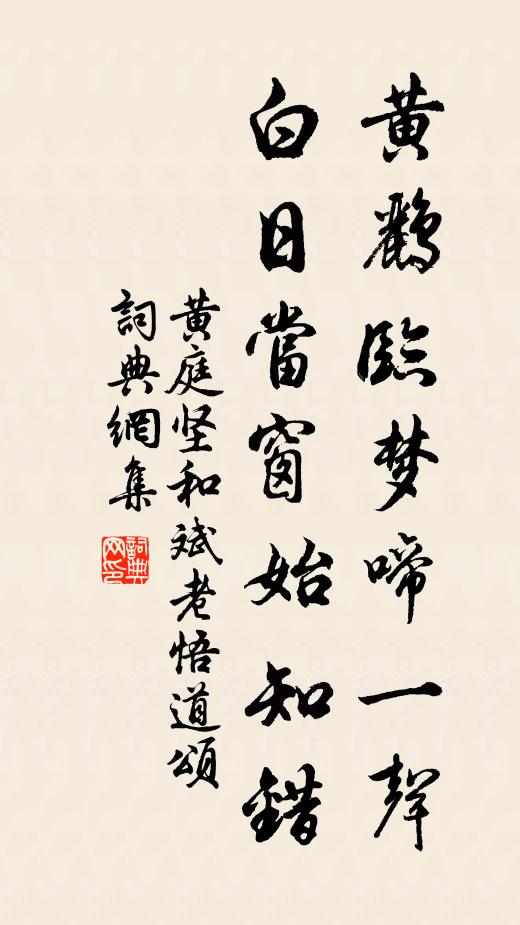 黄鸝臨梦啼一聲
白日當窗始知錯
黄庭坚和斌老悟道頌
詞典網集
詞典網印